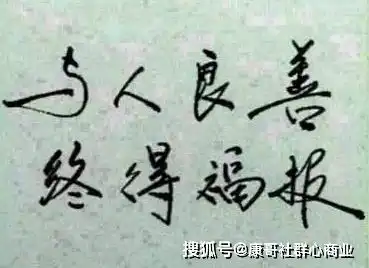 与人良善
终得福报
搜狐号@康哥社群心商业